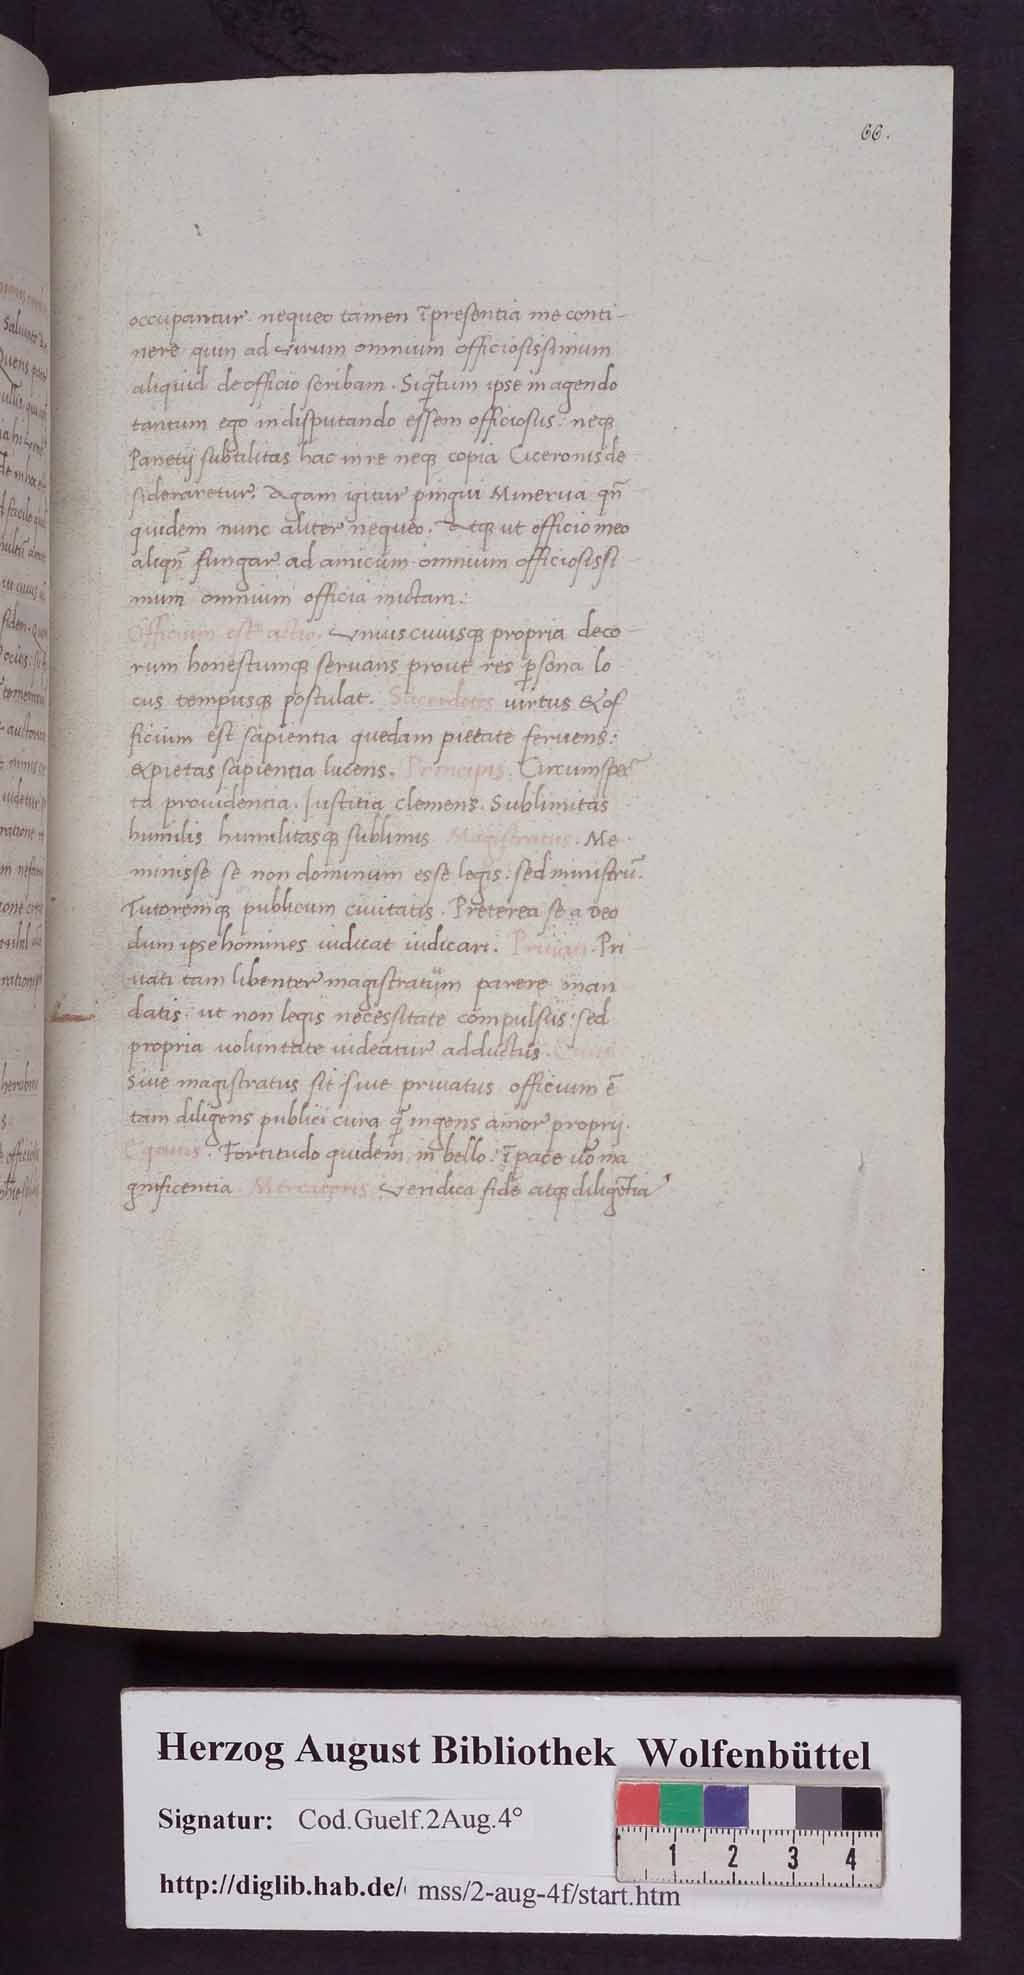 66.
occupantur. nequeo tamen īpresentia me conti-
nere quin ad virum omnium officiosissimum
aliquid de officio scribam. Siqͣtum ipse in agendo
tantum ego in disputando essem officiosus: neqꝫ
Panetij subtilitas hac in re neqꝫ copia Ciceronis de
sideraretur. Agam igitur pingui Minerua qn̄
quidem nunc aliter nequeo. Atqꝫ ut officio meo
aliqn̄ fungar ad amicum omnium officiosissi
mum omnium officia mictam:
Officium est actio. Vniuscuiusqꝫ propria deco-
rum honestumqꝫ seruans prout res ꝑsona lo
cus tempusqꝫ postulat. Sacerdotis uirtus & of
ficium est sapientia quedam pietate feruens:
& pietas sapientia lucens. Principis. Circumspec
ta prouidentia. Iustitia clemens. Sublimitas
humilis humilitasqꝫ sublimis. Magistratus. Me
minisse se non dominum esse legis: sed ministrū.
Tutoremqꝫ publicum ciuitatis. Preterea se a deo
dum ipse homines iudicat iudicari. Priuati. Pri
uati tam libenter magistratuum parere man
datis: ut non legis necessitate compulsus: sed
propria uoluntate uideatur adductus.
Siue magistratus sit siue priuatus officium ē
tam diligens publici cura qͣ ingens amor proprij.
Equitis. Fortitudo quidem in bello: ī pace uͦo ma
gnificentia. Mercatoris. Veridica fide atqꝫ diligētia
Herzog August Bibliothek Wolfenbüttel
Signatur: Cod.Guelf.2Aug.4°
1 2 3 4
http://diglib.hab.de/ mss/2-aug-4f/start.htm